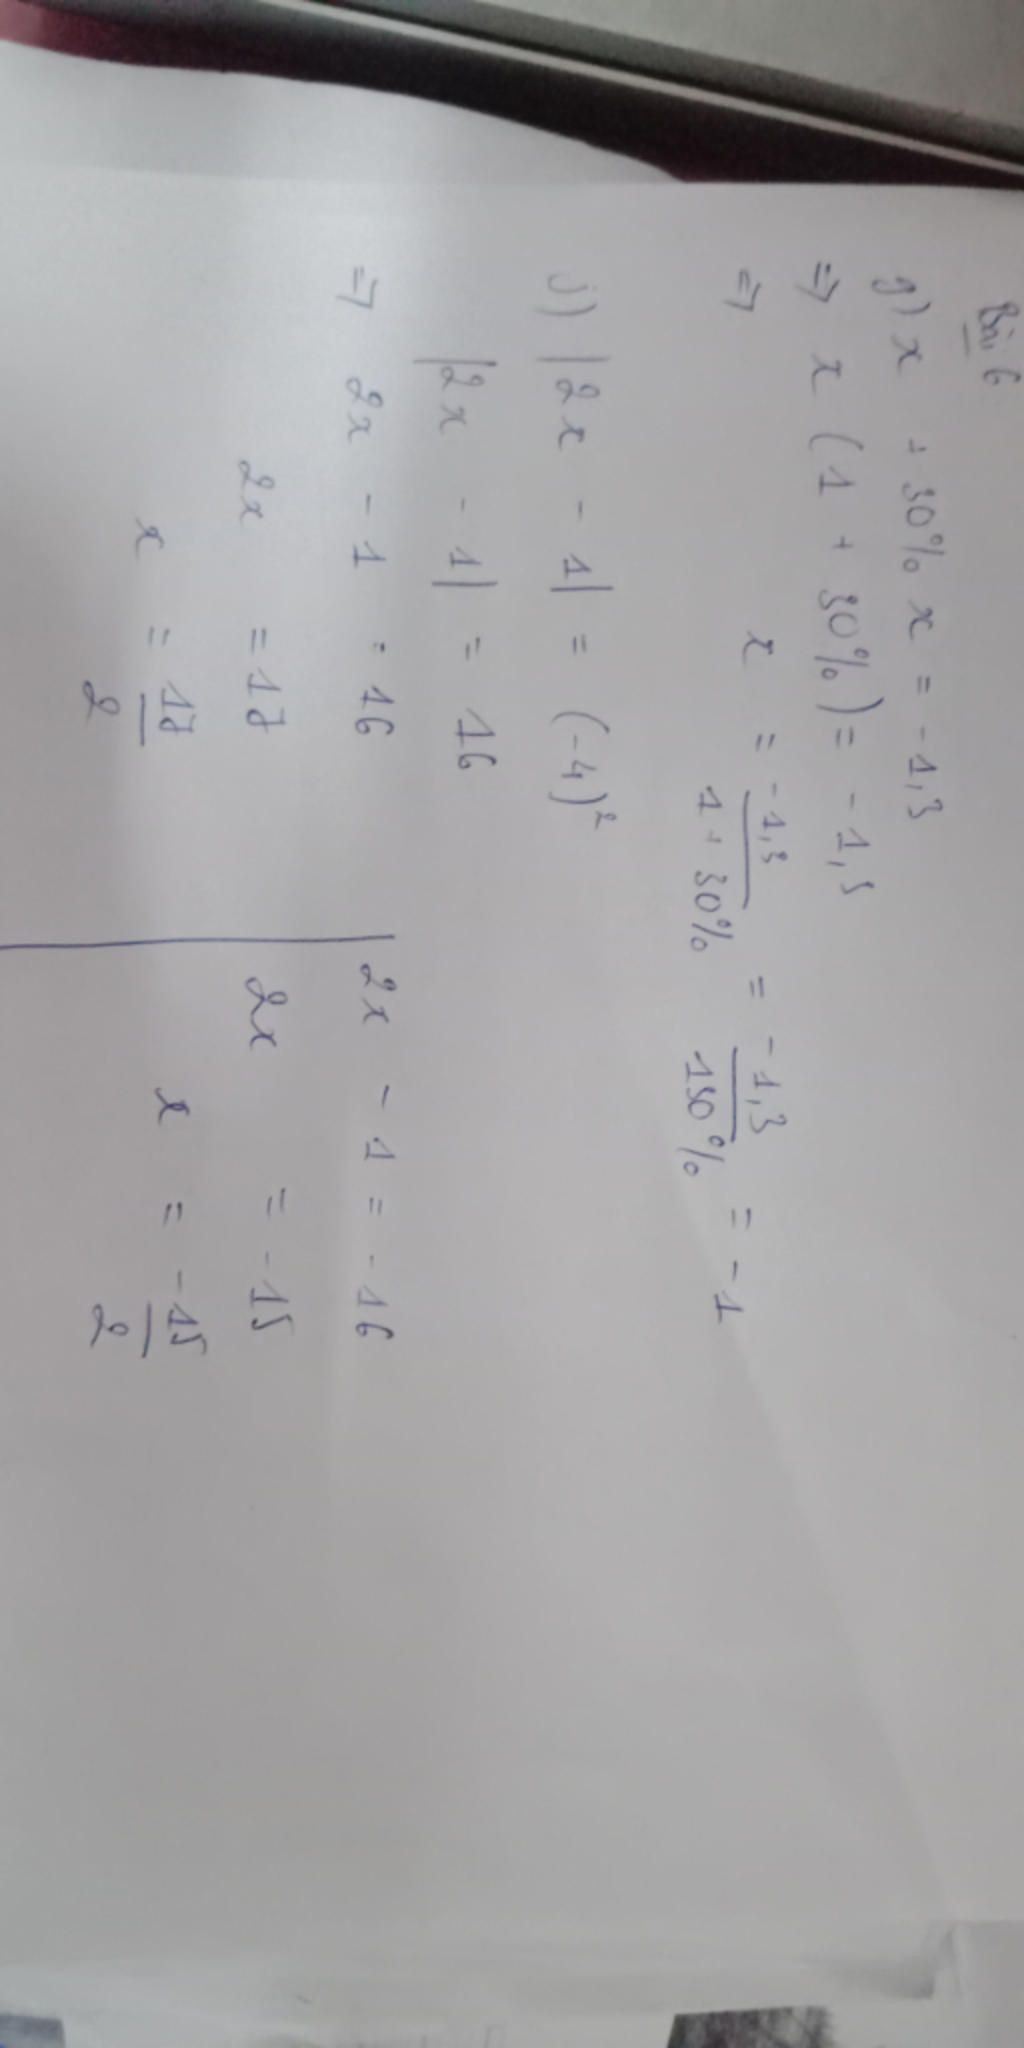 Bài 6
g) x + 30% x = -1,3
=> x (1 + 30%) = -1,3
=> x = -1,3 / 1 + 30% = -1,3 / 130% = -1
j) |2x - 1| = (-4)²
|2x - 1| = 16
=> 2x - 1 = 16 | 2x - 1 = -16
2x = 17 | 2x = -15
x = 17/2 | x = -15/2